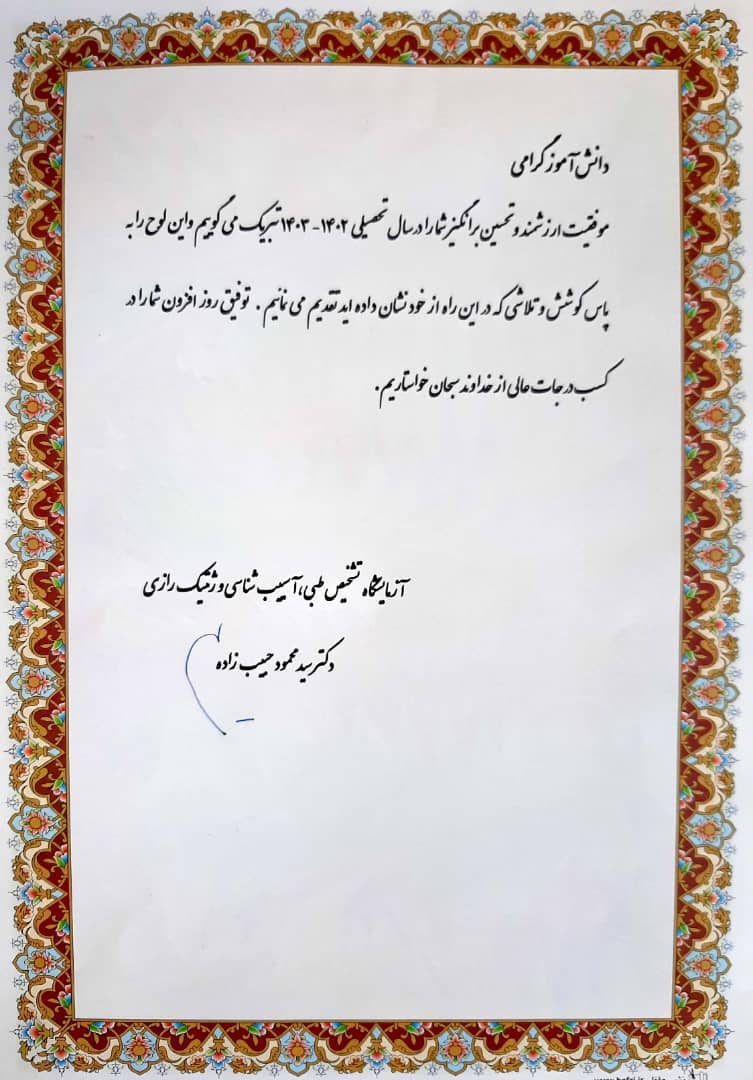 دانش آموز گرامی
موفقیت ارزشمند و تحسین برانگیز شما را در سال تحصیلی ۱۴۰۲-۱۴۰۳ تبریک می گوییم و این لوح را به
پاس کوشش و تلاشی که در این راه از خود نشان داده اید تقدیم می نمائیم . توفیق روز افزون شما را در
کسب درجات عالی از خداوند سبحان خواستاریم .
آزمایشگاه تشخیص طبی، آسیب شناسی و ژنتیک رازی
دکتر سید محمود حبیب زاده